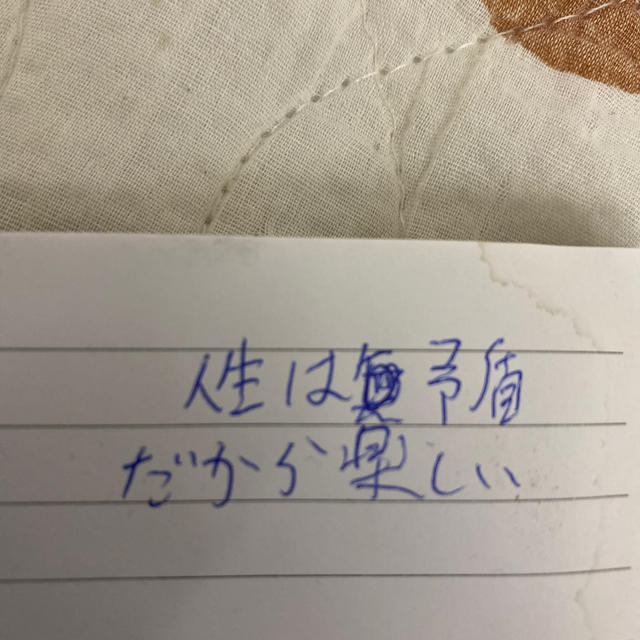 人生は矛盾
だから楽しい